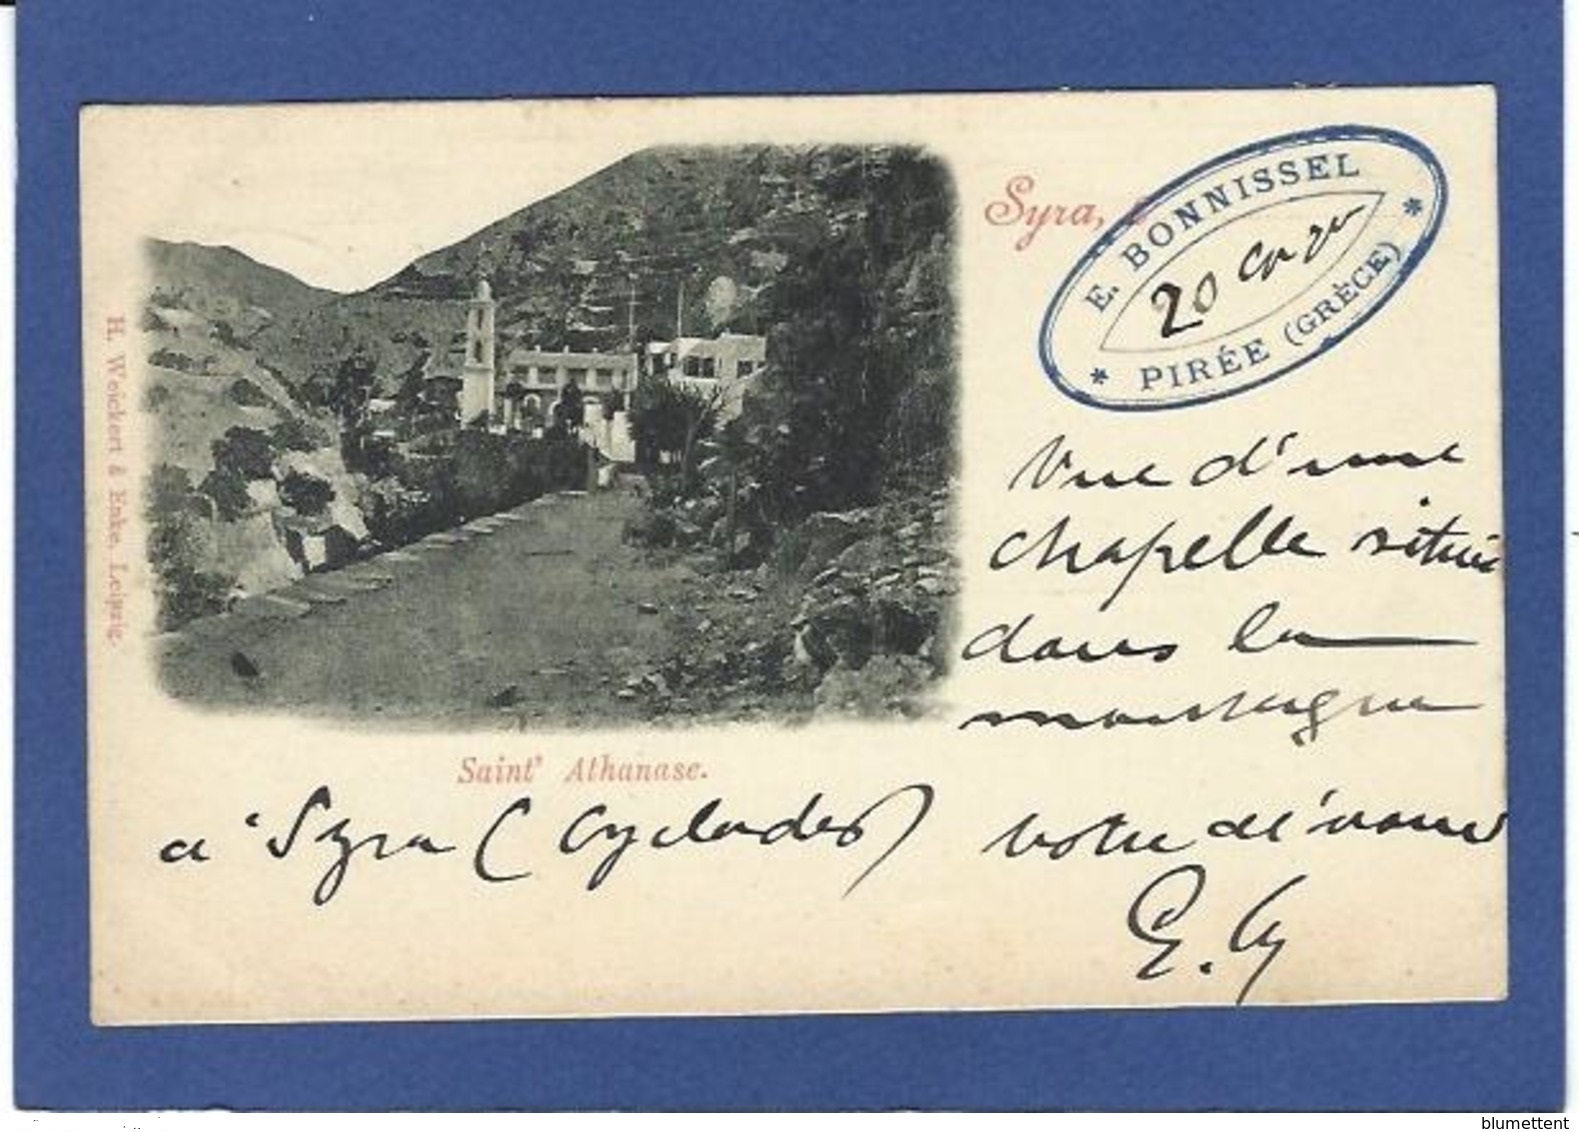 Syra,
E. BONNISSEL
20
PIRÉE (GRÈCE)
Vue d'une
chapelle située
dans la
montagne
H. Weickert & Enke, Leipzig.
Saint' Athanase.
a Syra (Cyclades) votre dévoué
blumettent